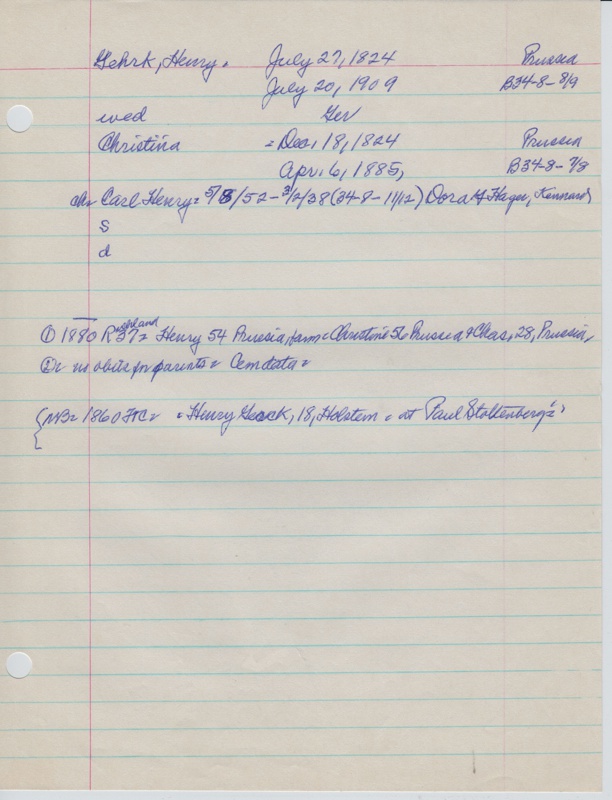 Gehrk, Henry. July 27, 1824 Prussia
July 20, 1909 B34-8-8/9
wed Ger
Christina = Dec. 18, 1824 Prussia
Apr. 6, 1885, B34-8-7/8
ch= Carl Henry= 5/8/52-3/2/38 (34-8-11/12) Dora M Hager, Kennard
S
d
① 1880 Richland 37= Henry 54 Prussia, farm= Christine 56 Prussia & Chas, 28, Prussia,
② no obits for parents= Cem data=
{NB= 1860 = Henry 18, Holstein = at Paul Stoltenberg's